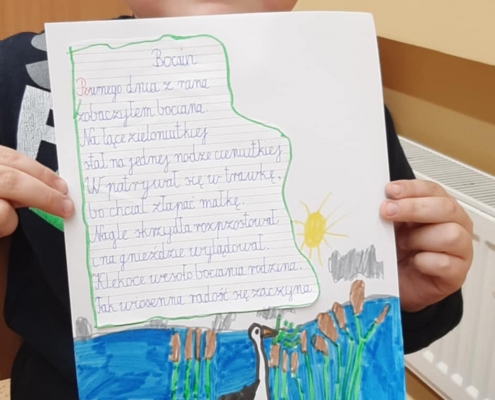 Bocian
Pewnego dnia z rana
zobaczyłem bociana.
Na łące zieloniutkiej
stał na jednej nodze cieniutkiej
W patrywał się w trawkę,
bo chciał złapać małkę.
Nagle skrzydła rozprostował
i na gnieździe wylądował.
Klekoce wesoło bociania rodzina.
Tak wiosenna radość się zaczyna